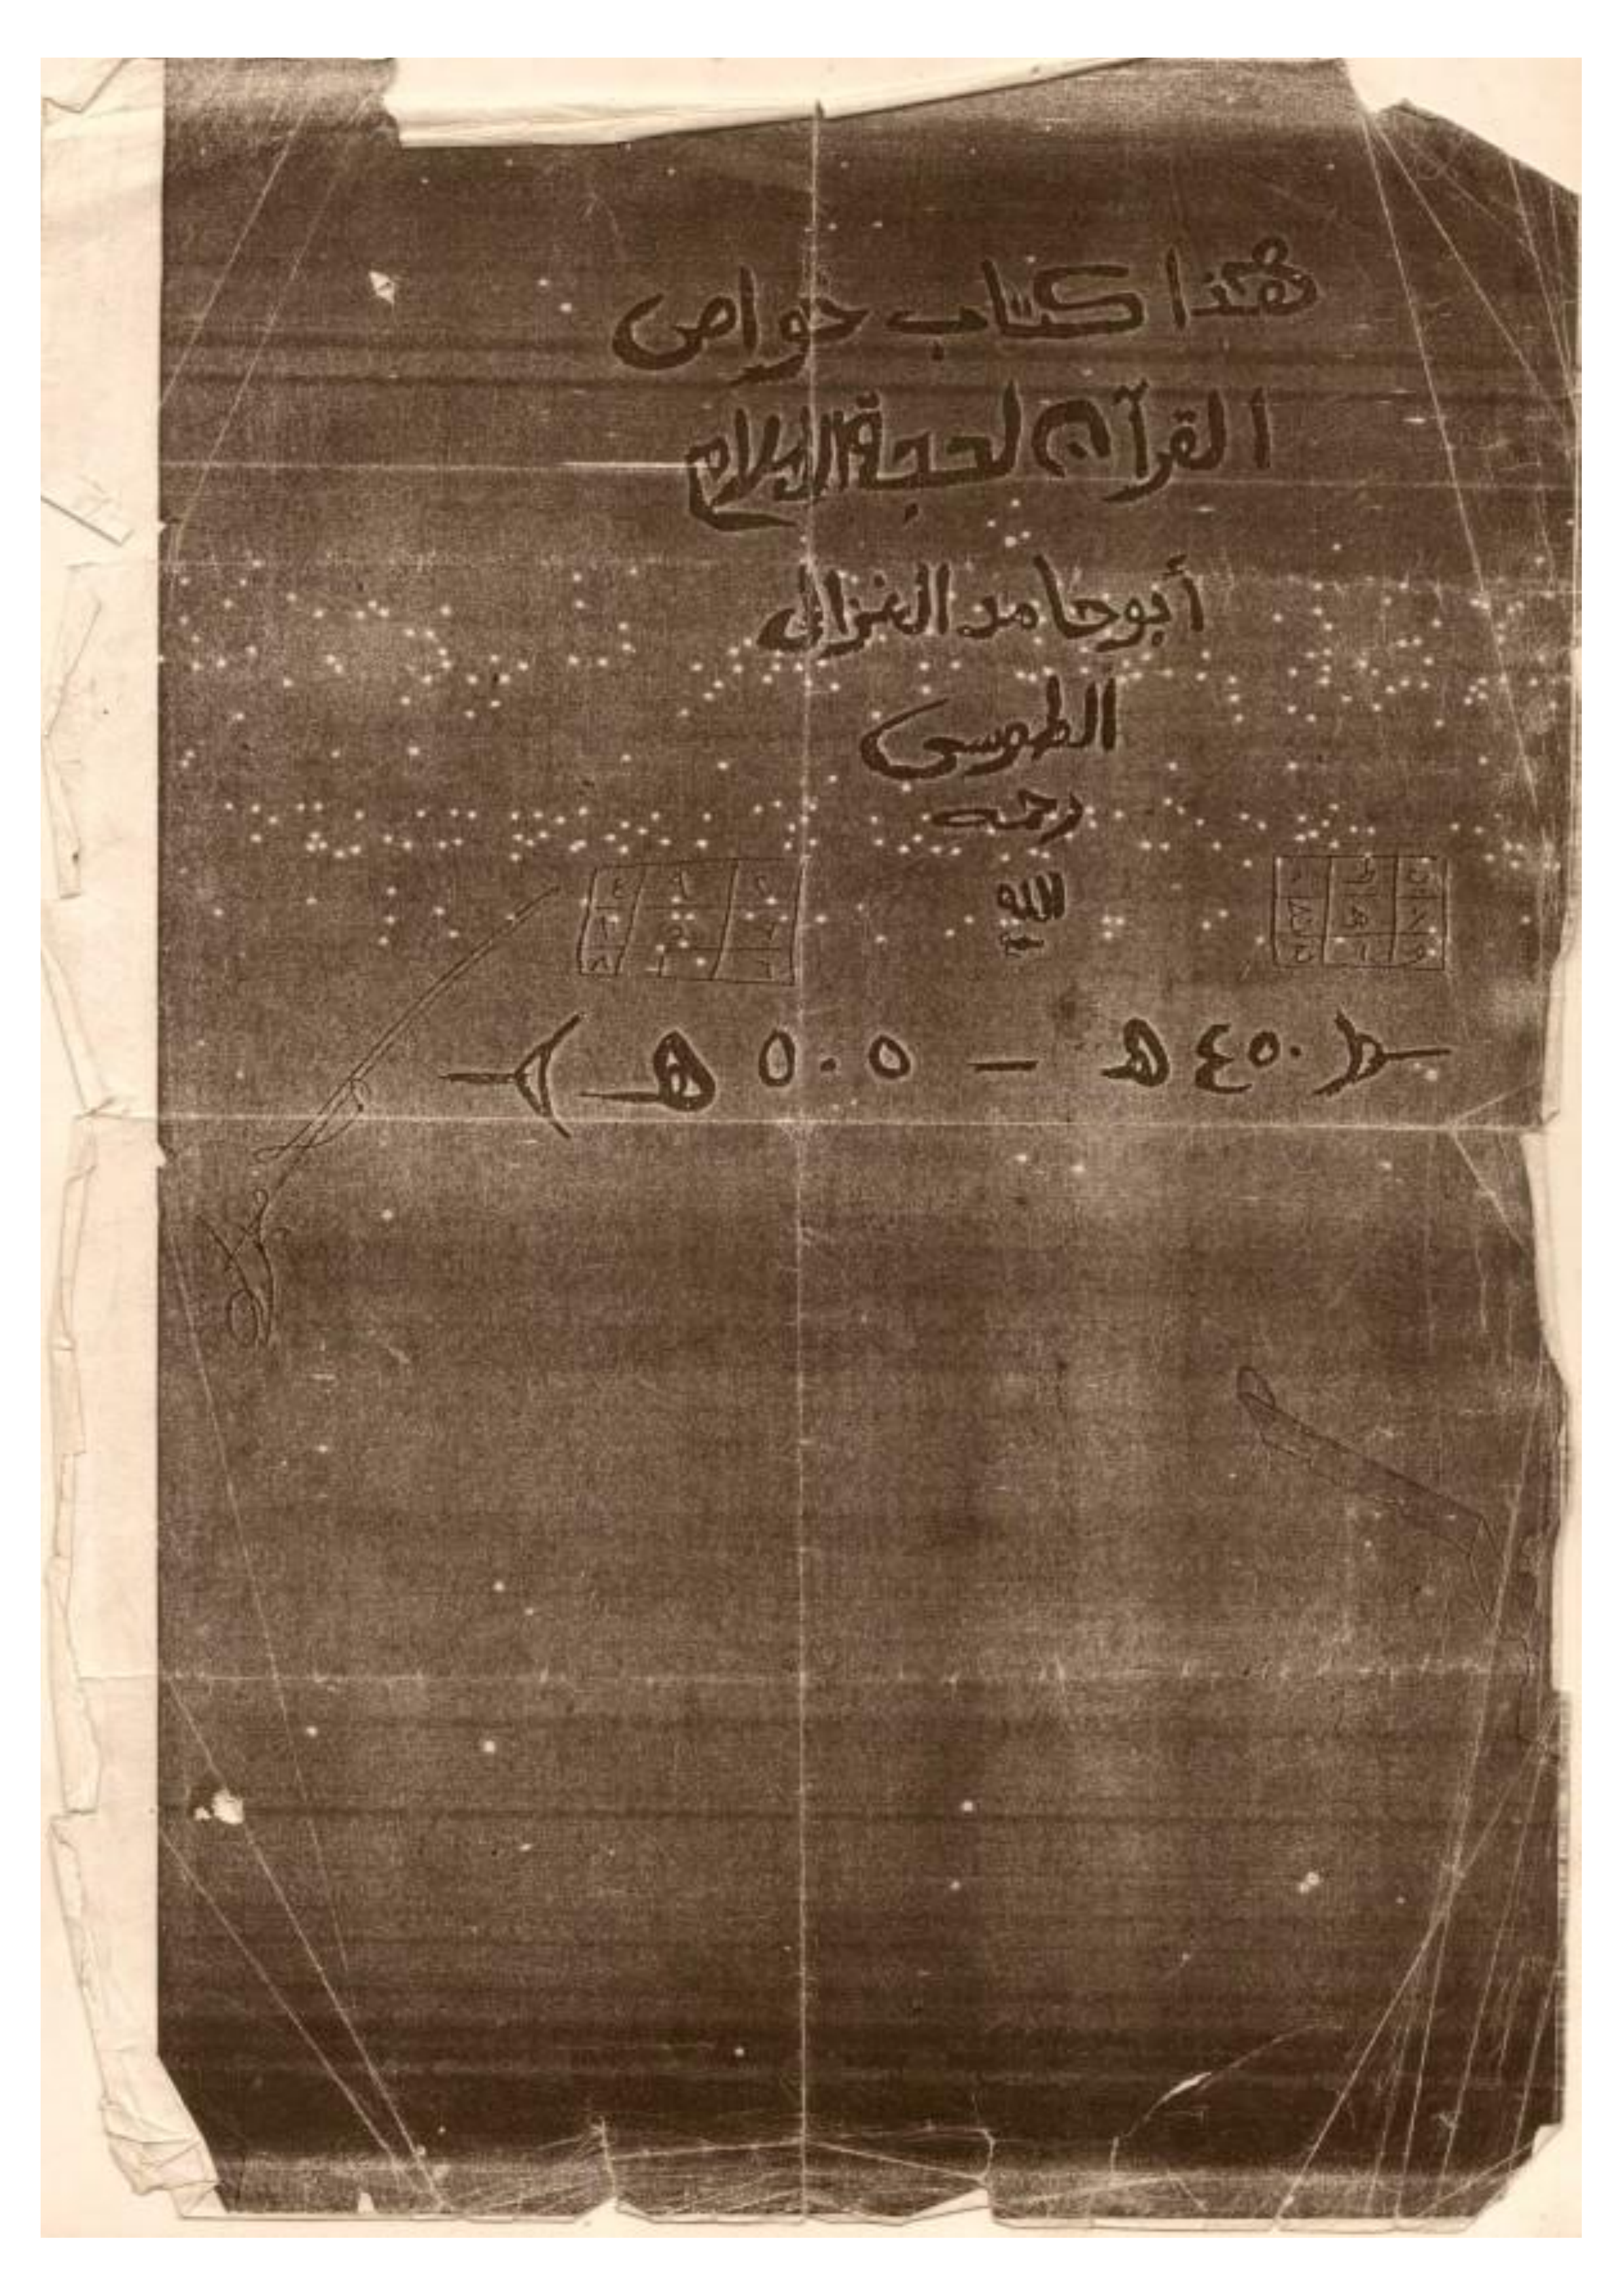 هذا كتاب خواص
القرآن لحجة الإسلام
أبو حامد الغزالي
الطوسي
رحمه
الله
٤ ٩ ٢
٣ ٥ ٧
٨ ١ ٦
( ٤٥٠ هـ - ٥٠٥ هـ )